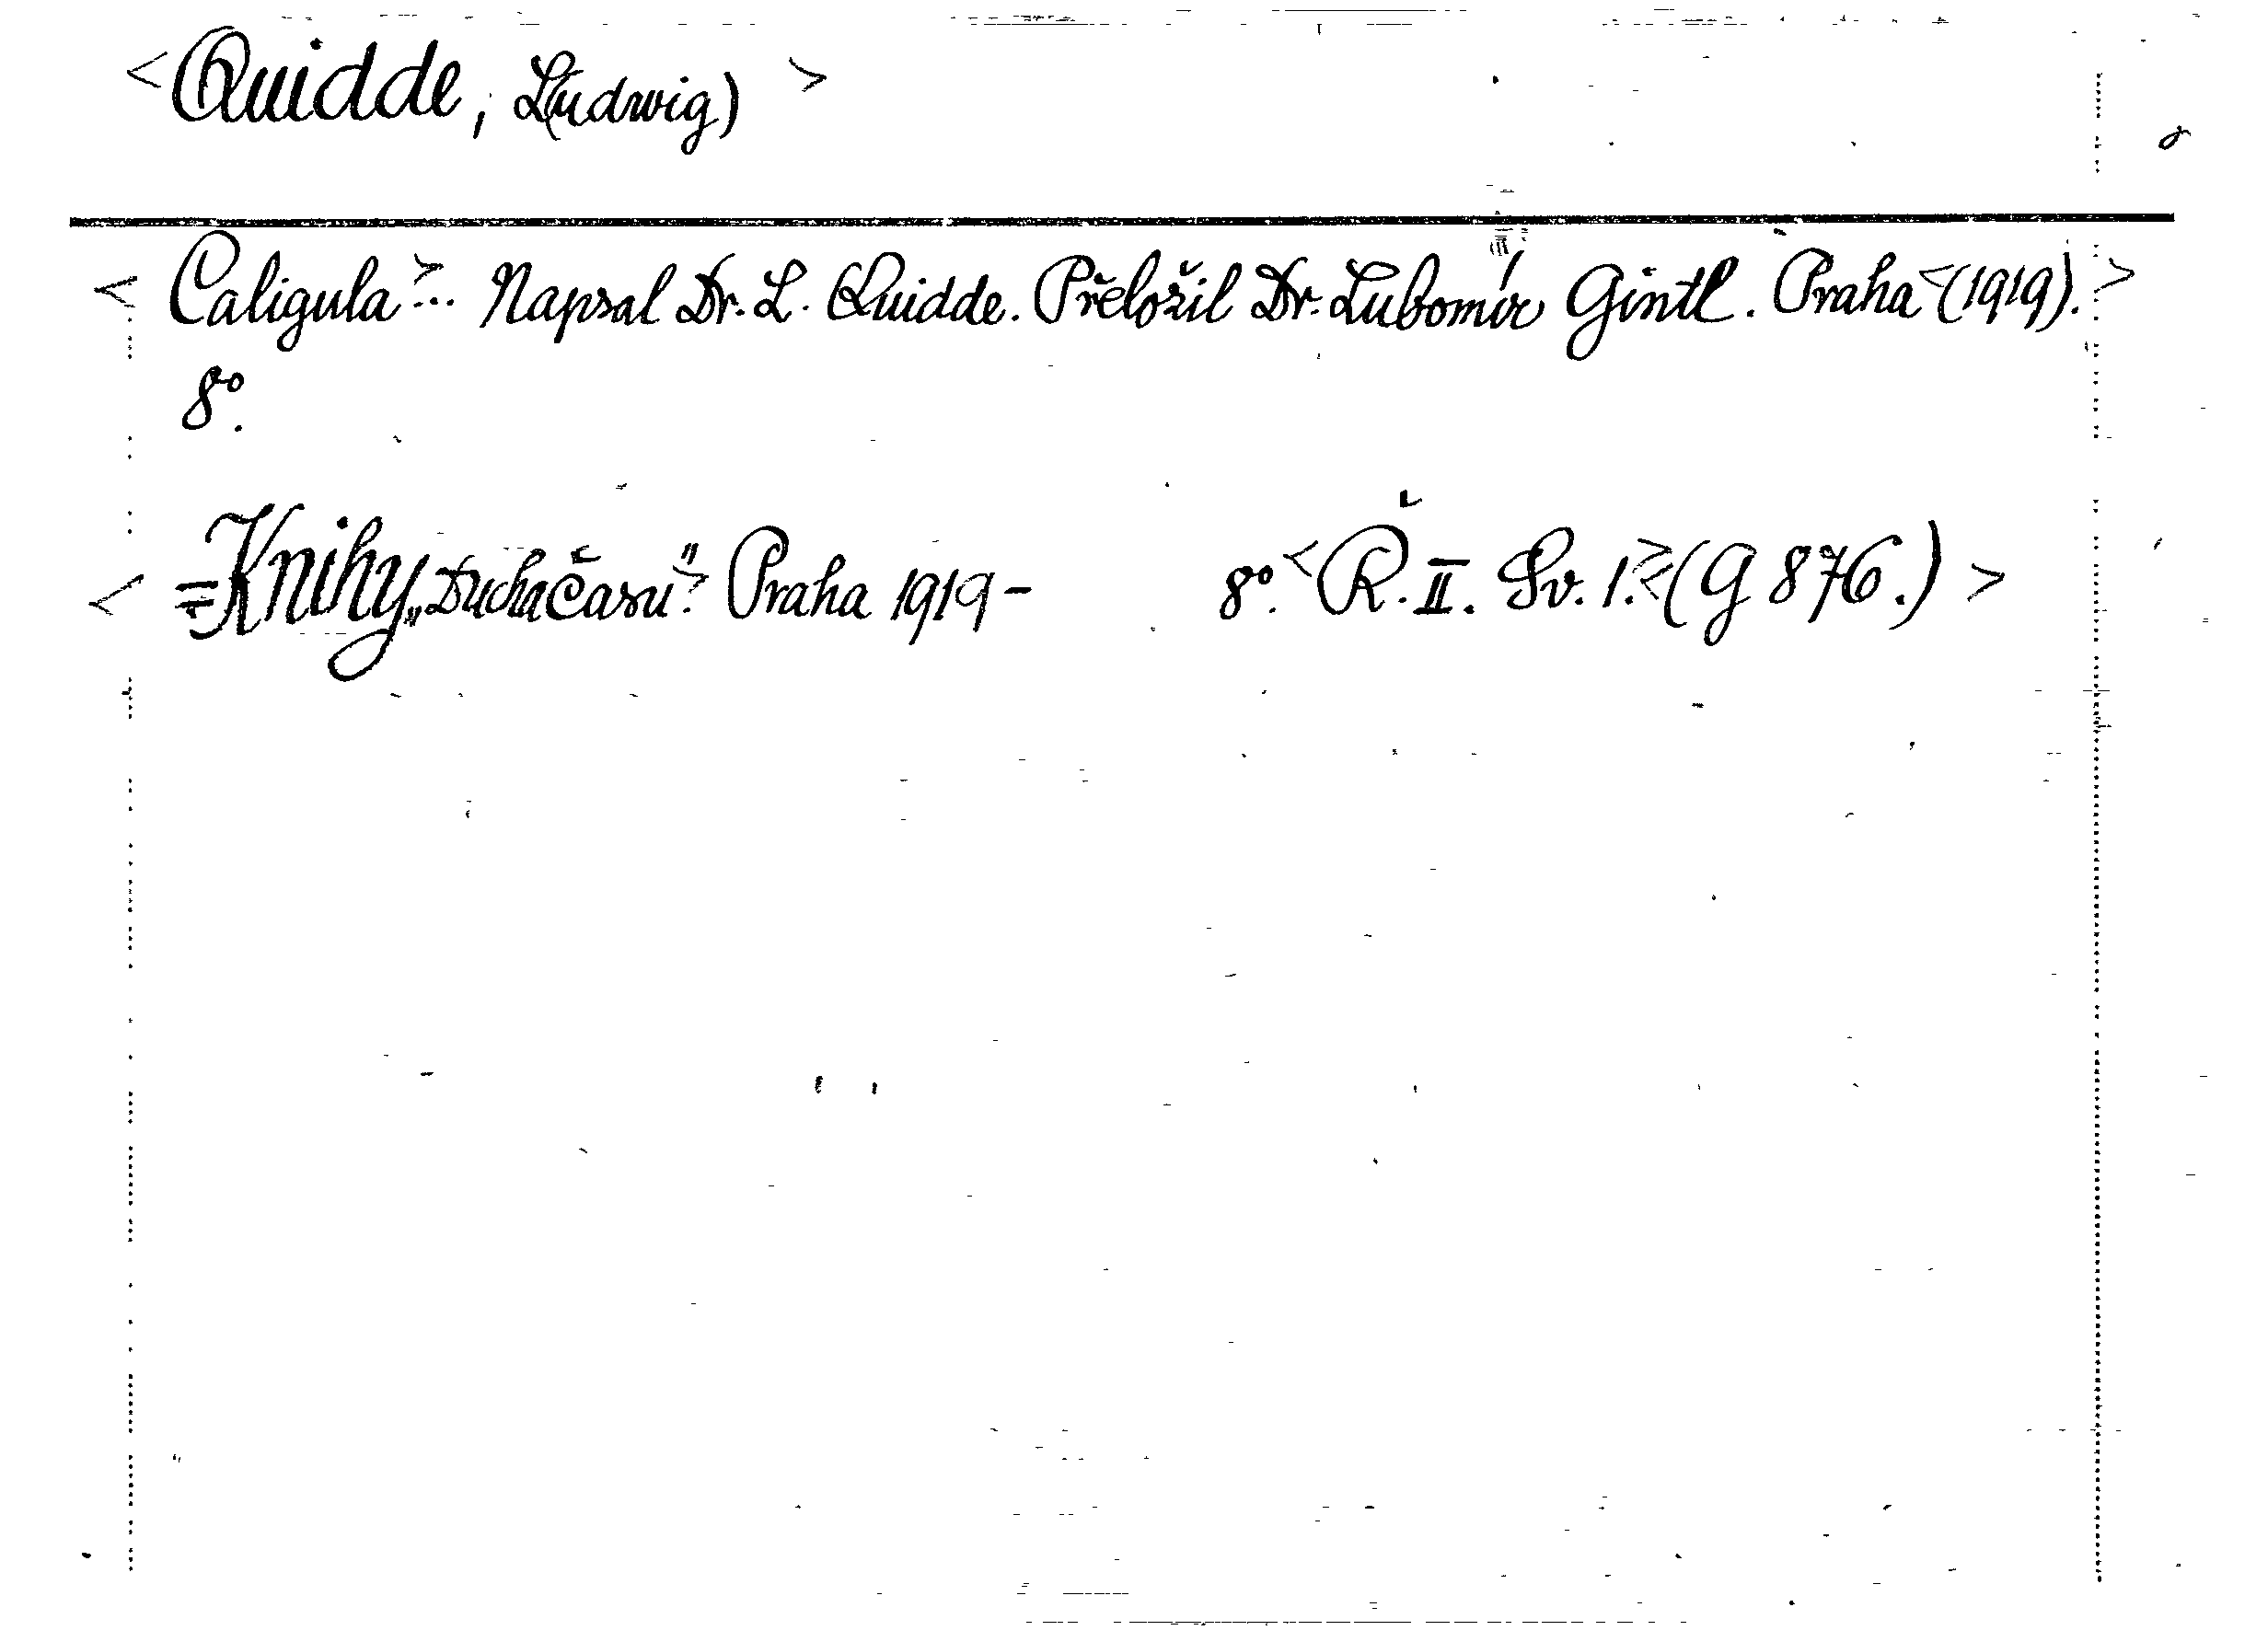 <Quidde, L(udwig)>
<Caligula>... Napsal Dr. L. Quidde. Přeložil Dr. Lubomír Gintl. Praha <(1919).>
8°.
<=Knihy „Ducha času“.> Praha 1919- 8°. <Ř. II. Sv. 1.> <(G 876.)>